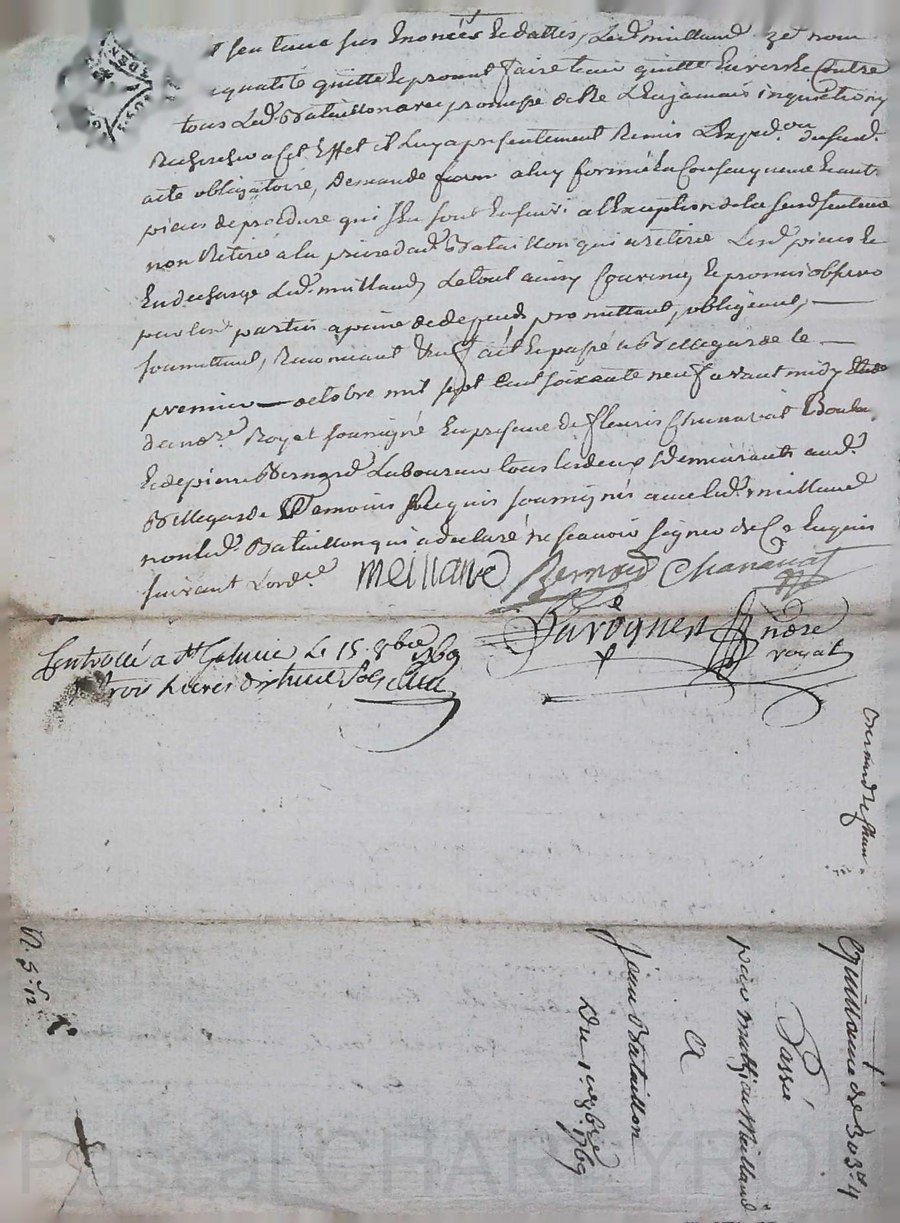 et sentence sus Enoncés Et dattés, Led. meilland ez nom
qualité quitte Et promet faire tenir quitte Envers Et Contre
tous Led. Bataillon avec promesse de ne L'en jamais inquietter ny
Rechercher a cet Effet il luy a presentement Remis L'Exped.on dususd.
acte obligatoire, Demande faitte a luy formée En Consequence Et autt.
pieces de procedure qui s'En sont Ensuivi a l'Exception de la susd. sentence
non Retirée a la priere dud. Bataillon qui a retiré Lesd. pieces Et
En decharge Led. meilland, Le tout ainsy Convenu, Et promis observer
par lesd. parties a peine de depends promettant, obligeant,
soumettant, Renonciant &a fait Et passé a Bellegarde le
premier octobre mil sept Cent soixante neuf avant midy
de no.re Royal soussigné En presence de fleuris Chanavat
Et de pierre Bernard Laboureur tous les deux demeurants aud.
Bellegarde Temoins Requis soussignés avec led. meilland
non led. Bataillon qui a declaré ne scavoir signer de Ce Enquis
suivant L'ord.ce
meilland Bernard Chanavat
nore
royal
Controllé a St Galmier Le 15 8bre 1769
trois Livres dix huit sols
Quittance de 303# 4
Passée
par mathieu Meilland
a
Jean Bataillon
Du 1er 8bre 1769